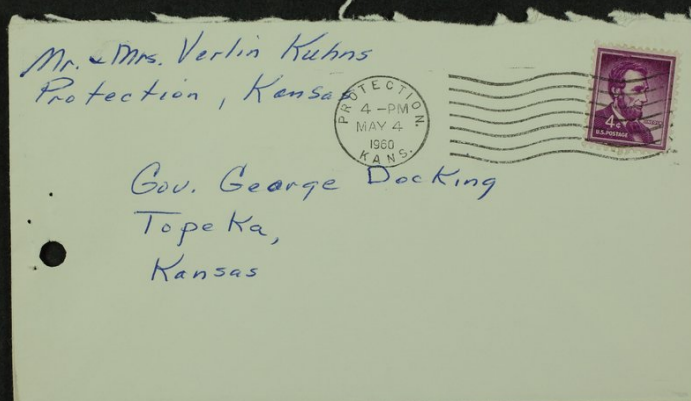 Mr. & Mrs. Verlin Kuhns
Protection, Kansas
PROTECTION.
4 -PM
MAY 4
1960
KANS.
4¢
U.S. POSTAGE
Gov. George Docking
Topeka,
Kansas